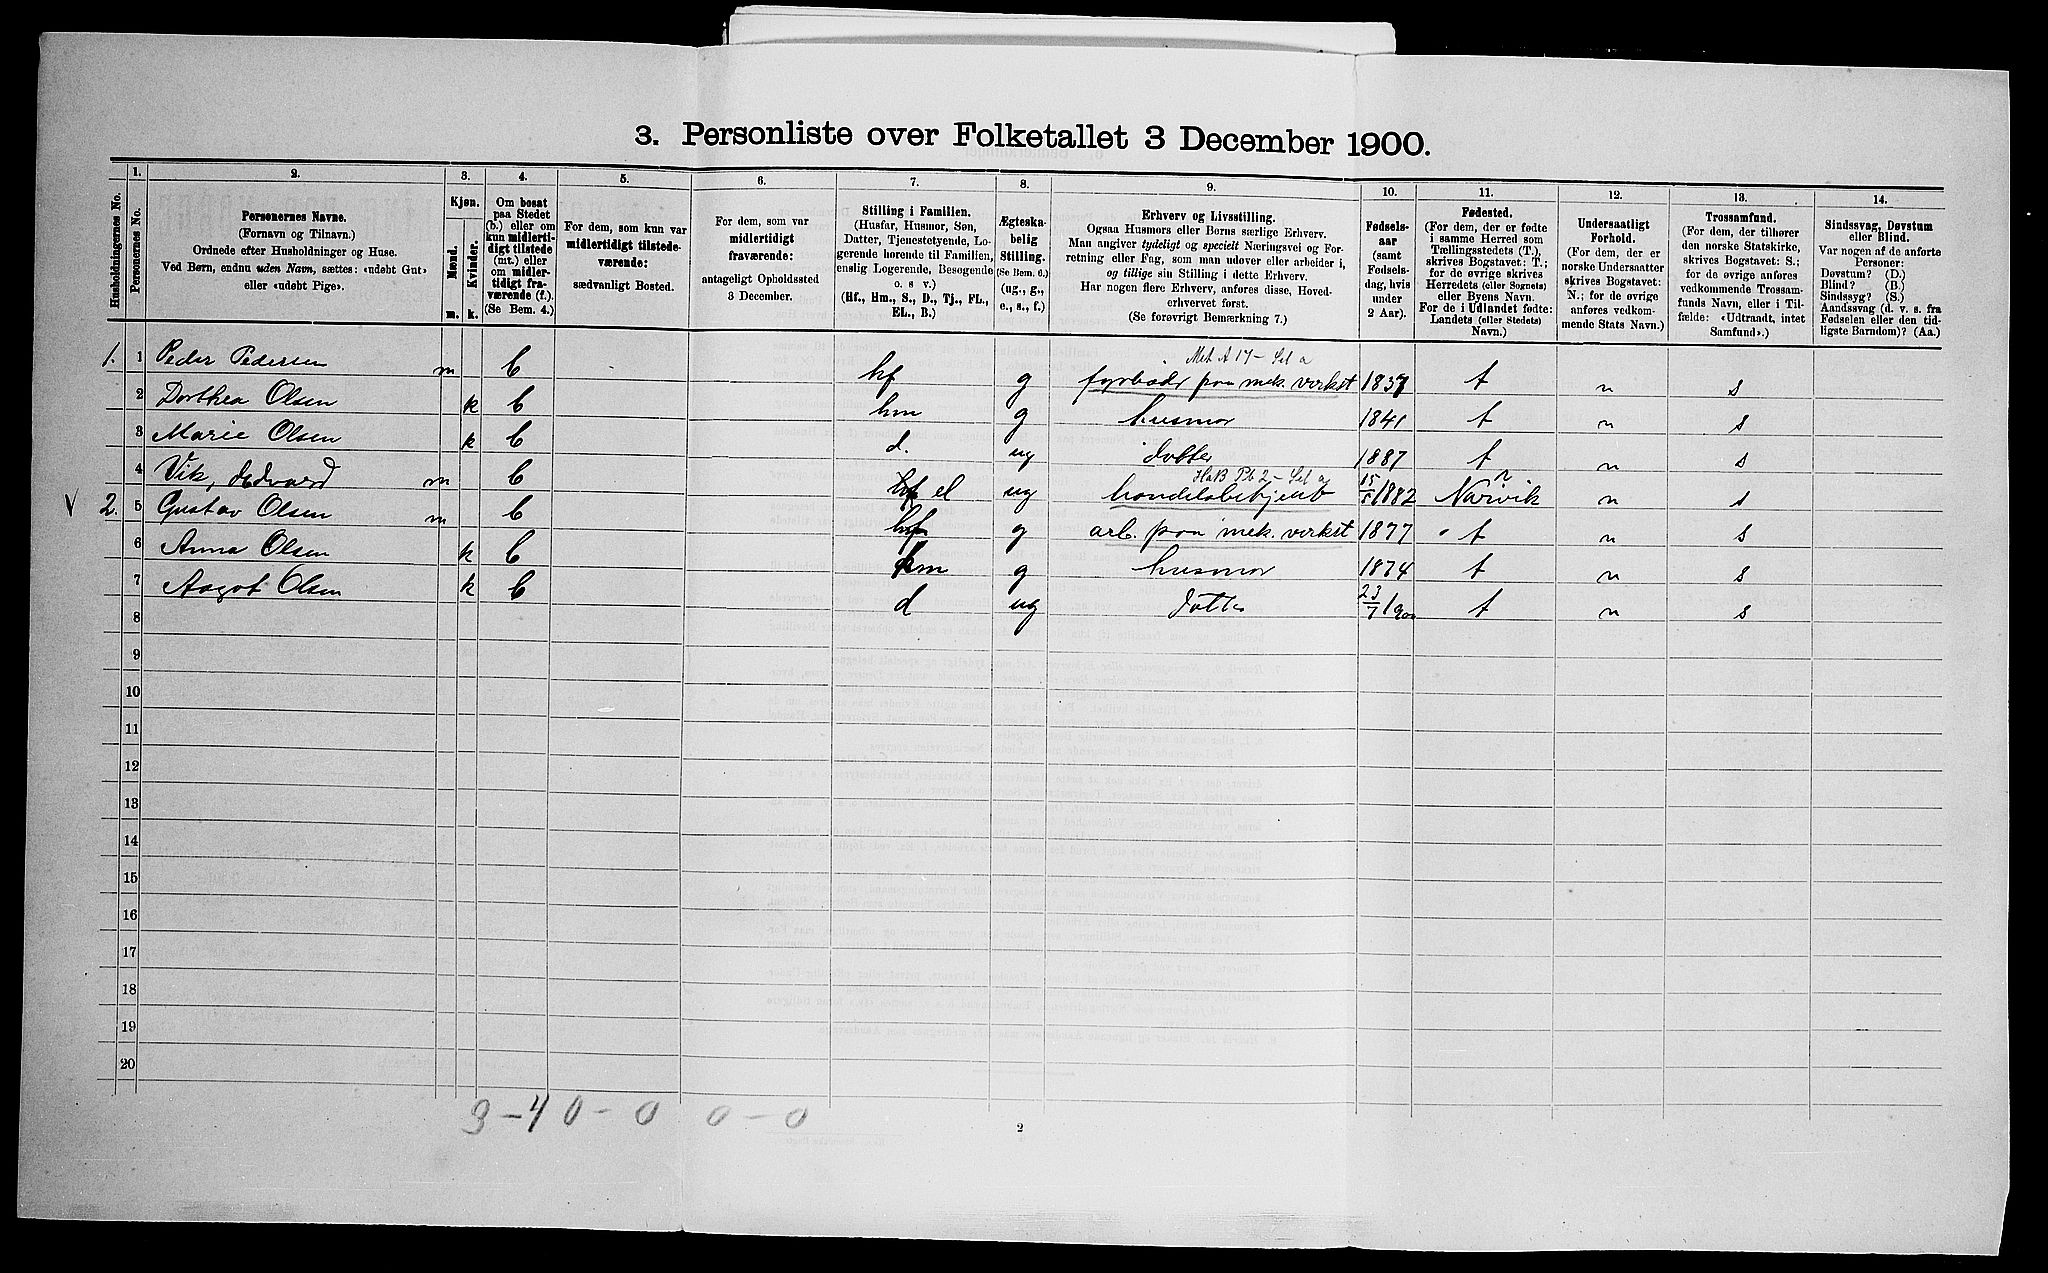 3. Personliste over Folketallet 3 December 1900.
1. 2. 3. 4. 5. 6. 7. 8. 9. 10. 11. 12. 13. 14.
Husholdningernes No.
Personernes No.
Personernes Navne.
(Fornavn og Tilnavn.)
Ordnede efter Husholdninger og Huse.
Ved Børn, endnu uden Navn, sættes: «udøbt Gut»
eller «udøbt Pige».
Kjøn.
Mænd.
Kvinder.
m. k.
Om bosat
paa Stedet
(b.) eller om
kun midlerti-
digt tilstede
(mt.) eller
om midler-
tidigt fra-
værende (f.).
(Se Bem. 4.)
For dem, som kun var
midlertidigt tilstede-
værende:
sædvanligt Bosted.
For dem, som var
midlertidigt
fraværende:
antageligt Opholdssted
3 December.
Stilling i Familien.
(Husfar, Husmor, Søn,
Datter, Tjenestetyende, Lo-
gerende hørende til Familien,
enslig Logerende, Besøgende
o. s v.)
(Hf., Hm., S., D., Tj., FL.,
EL., B.)
Ægteska-
belig
Stilling.
(Se Bem. 6.)
(ug., g.,
e., s., f.)
Erhverv og Livsstilling.
Ogsaa Husmors eller Børns særlige Erhverv.
Man angiver tydeligt og specielt Næringsvei og For-
retning eller Fag, som man udøver eller arbeider i,
og tillige sin Stilling i dette Erhverv.
Har nogen flere Erhverv, anføres disse, Hoved-
erhvervet først.
(Se forøvrigt Bemærkning 7.)
Fødsels-
aar
(samt
Fødsels-
dag, hvis
under
2 Aar).
Fødested.
(For dem, der er fødte
i samme Herred som
Tællingsstedets (T.),
skrives Bogstavet: T.;
for de øvrige skrives
Herredets (eller Sognets)
eller Byens Navn.
For de i Udlandet fødte:
Landets (eller Stedets)
Navn.)
Undersaatligt
Forhold.
(For dem, der er
norske Undersaatter
skrives Bogstavet:
N.; for de øvrige
anføres vedkom-
mende Stats Navn.)
Trossamfund.
(For dem, der tilhører
den norske Statskirke,
skrives Bogstavet: S.;
for de øvrige anføres
vedkommende Trossam-
funds Navn, eller i Til-
fælde: «Udtraadt, intet
Samfund».)
Sindssvag, Døvstum
eller Blind.
Var nogen af de anførte
Personer:
Døvstum? (D.)
Blind? (B.)
Sindssyg? (S.)
Aandssvag (d. v. s. fra
Fødselen eller den tid-
ligste Barndom)? (Aa.)
1. 1 Peder Pedersen m b hf g fyrbøder paa mek. verkst 1837 t n s
2 Dorthea Olsen k b hm g husmor 1841 t n s
3 Marie Olsen k b d. ug dotter 1887 t n s
4 Vik, Edvard m b el ug handelsbetjent 15/5 1882 Narvik n s
V 2. 5 Gustav Olsen m b hf g arb. paa mek. verkst 1877 t n s
6 Anna Olsen k b hm g husmor 1874 t n s
7 Aagot Olsen k b d ug dotter 23/7 1900 t n s
8
9
10
11
12
13
14
15
16
17
18
19
20
3 – 4 0 – 0 0 – 0
2